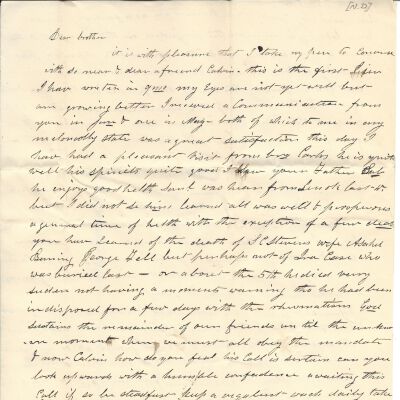 [N.D]
Dear brother
it is with pleasure that I take my pen to Converse
with so near & dear a friend Calvin this is the first
I have wrote in my Eyes are not yet well but
am growing better I received a Communication from
you in June & one in May both of which to me in my
state was a great satisfaction this day I
have had a pleasant visit from he is quite
well his spirits quite good I your Father
he enjoys good helth Aunt was hear from last
but I did not se him learnd all was well & prosperous
a general time of helth with the exception of a few
you have learned of the death of J C Stevens wife
George Hill but perhaps not of Ira Case who
was buried last — or about the 5th he died very
sudon not having a moments warning tho he had been
indisposed for a few days with the rheumatism God
sustains the remainder of our friends un til the
moment we must all obey the mandate
& now Calvin how do you feel his Call is certain can you
look upwards with a humble confidence awaiting this
Call if so be steadfast keep a vigilant watch daily take